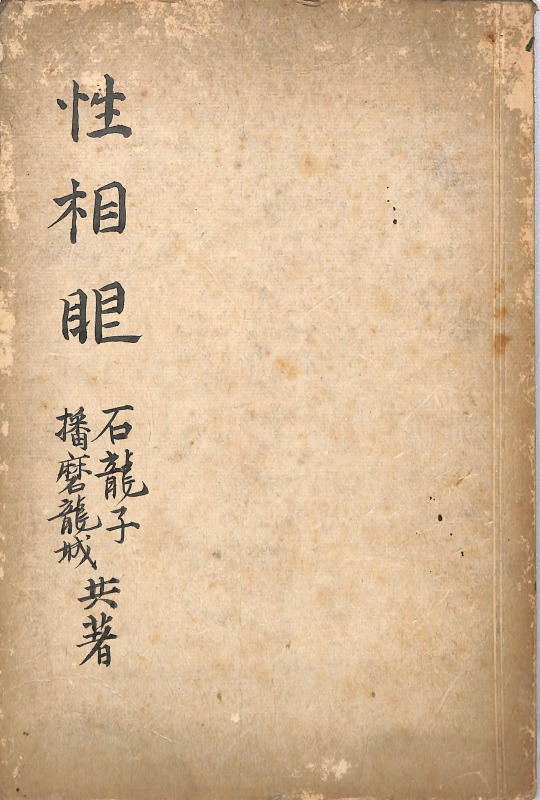 性相眼
石龍子
播磨龍城
共著